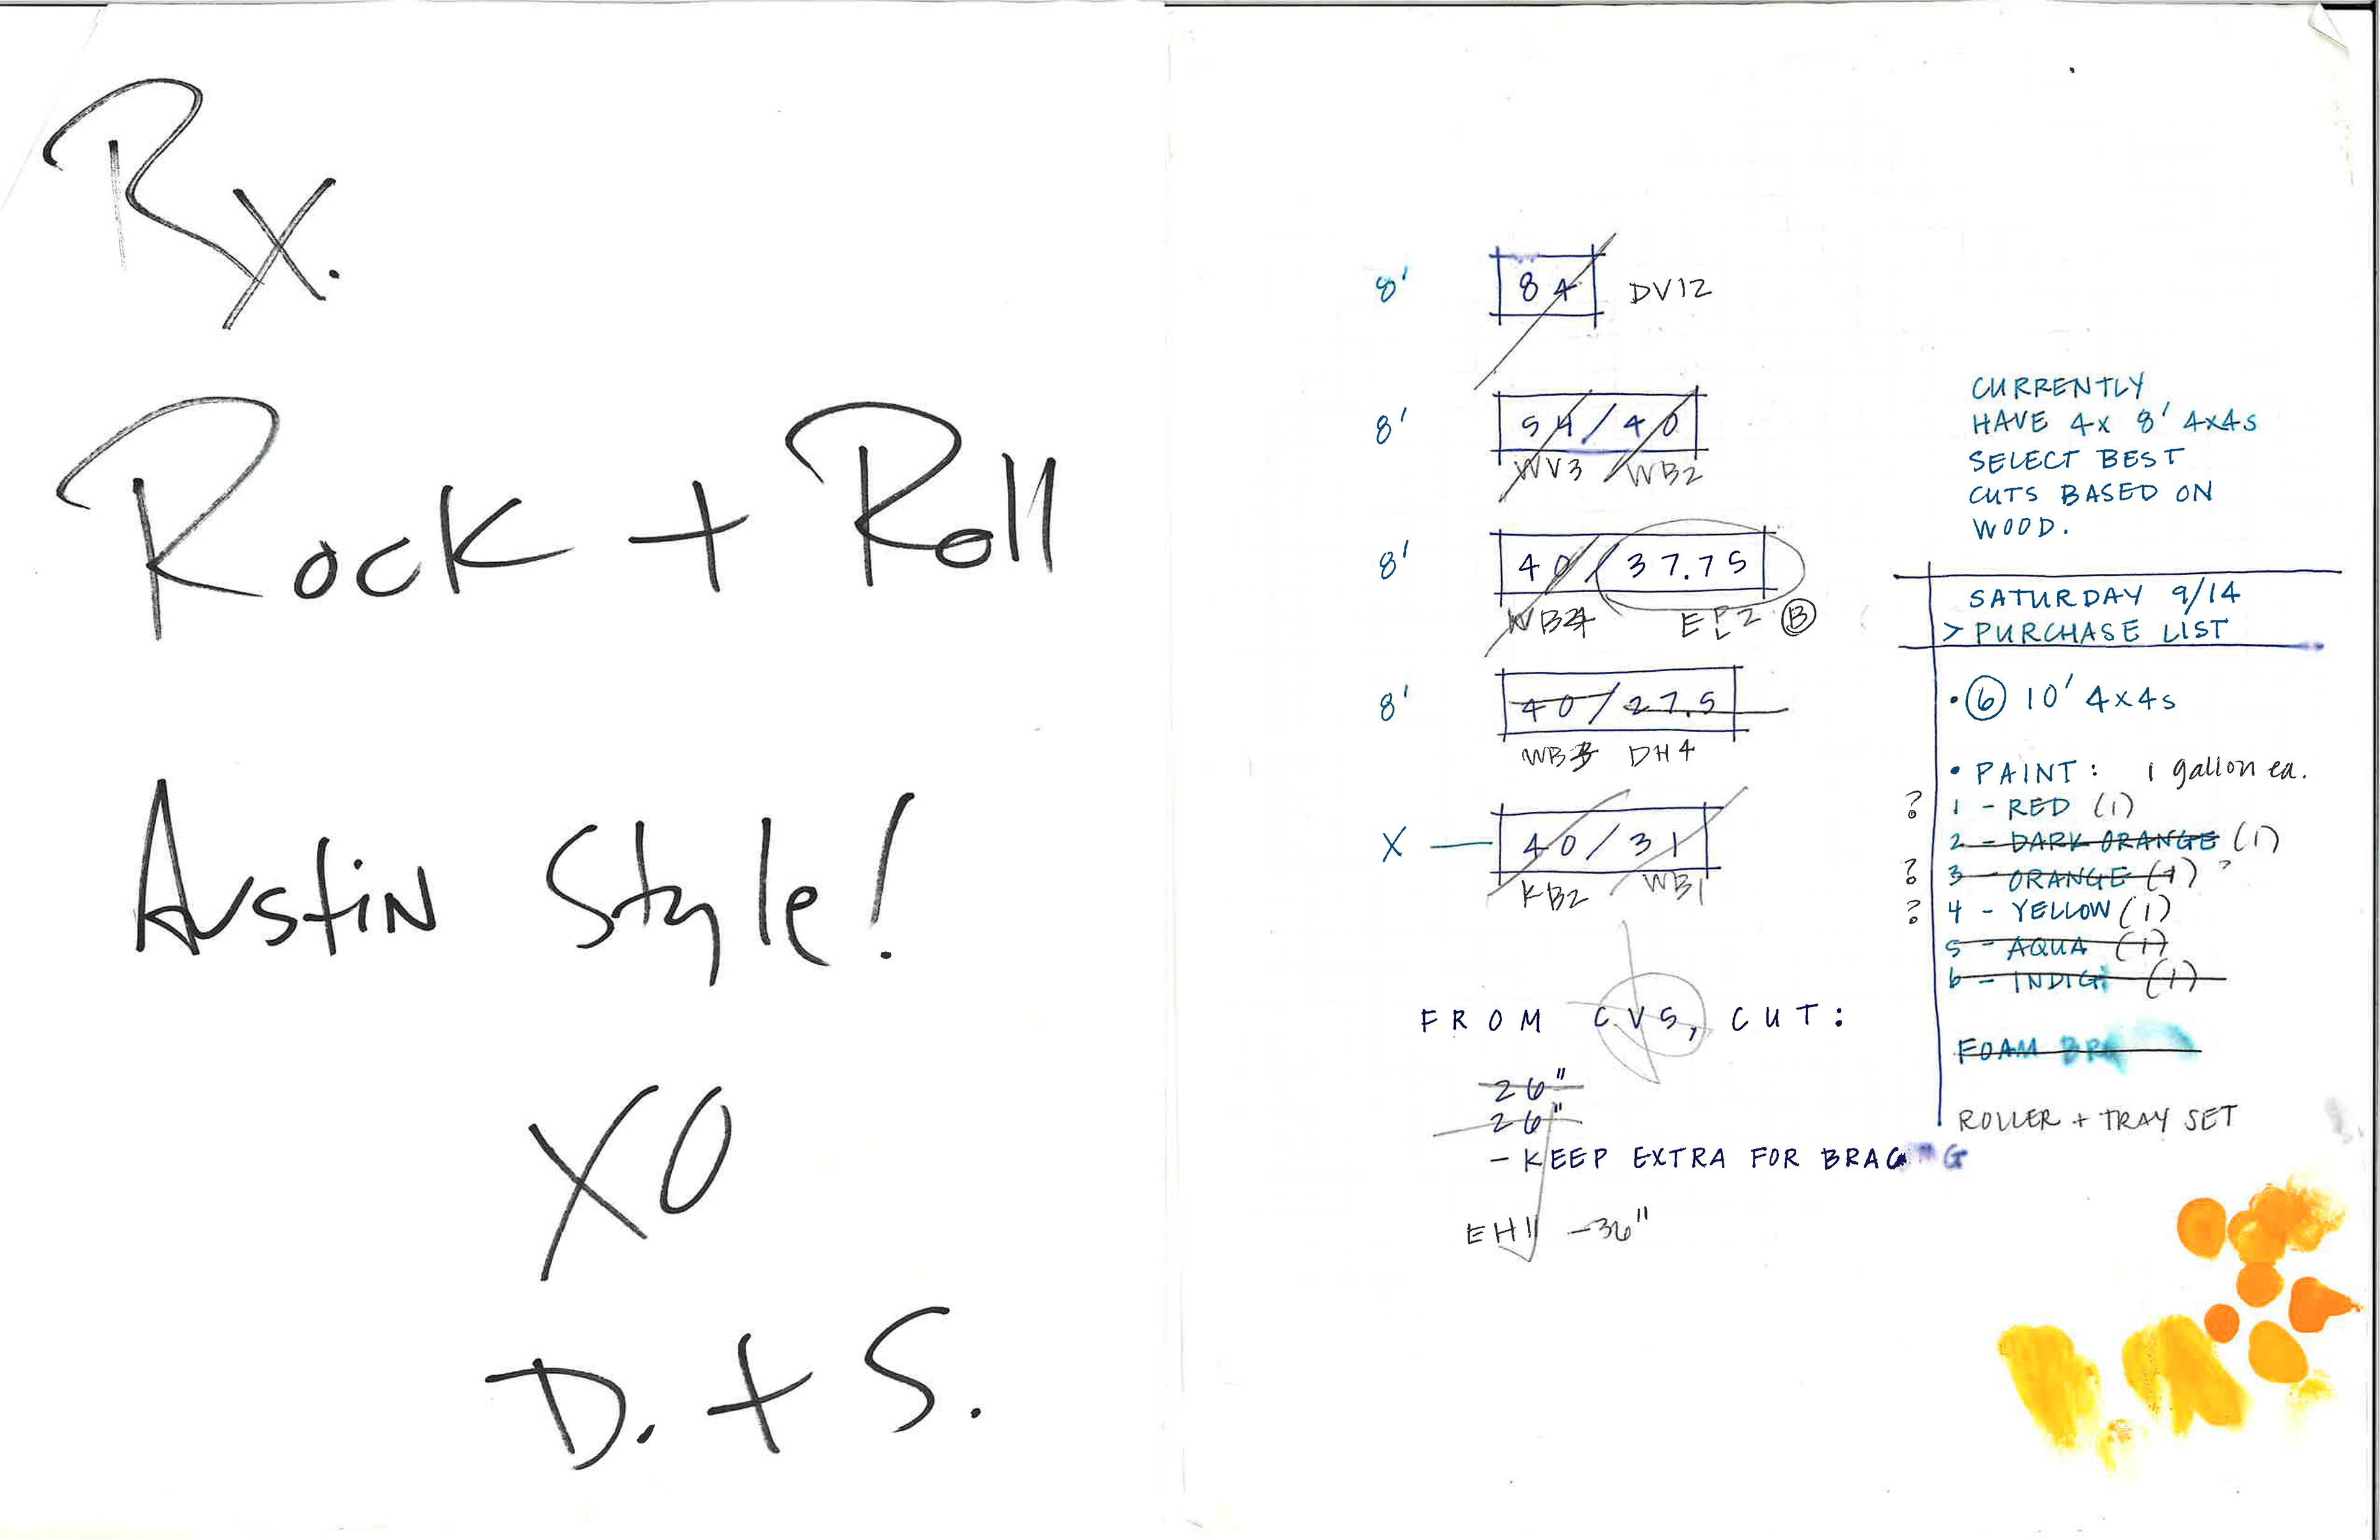 Rx.
Rock + Roll
Austin Style!
XO
D. + S.
8' 84 DV12
8' 54/40
WV3 WB2
8' 40/37.75
WB4 EP2 B
8' 40/27.5
WB3 DH4
X — 40/31
KB2 WB1
FROM CVS, CUT:
26"
26"
- KEEP EXTRA FOR BRACING
EH1 - 36"
CURRENTLY
HAVE 4x 8' 4x4s
SELECT BEST
CUTS BASED ON
WOOD.
SATURDAY 9/14
> PURCHASE LIST
• 6 10' 4x4s
• PAINT: 1 gallon ea.
? 1 - RED (1)
2 - DARK ORANGE (1)
? 3 - ORANGE (1) ?
? 4 - YELLOW (1)
5 - AQUA (1)
6 - INDIG (1)
FOAM
ROLLER + TRAY SET